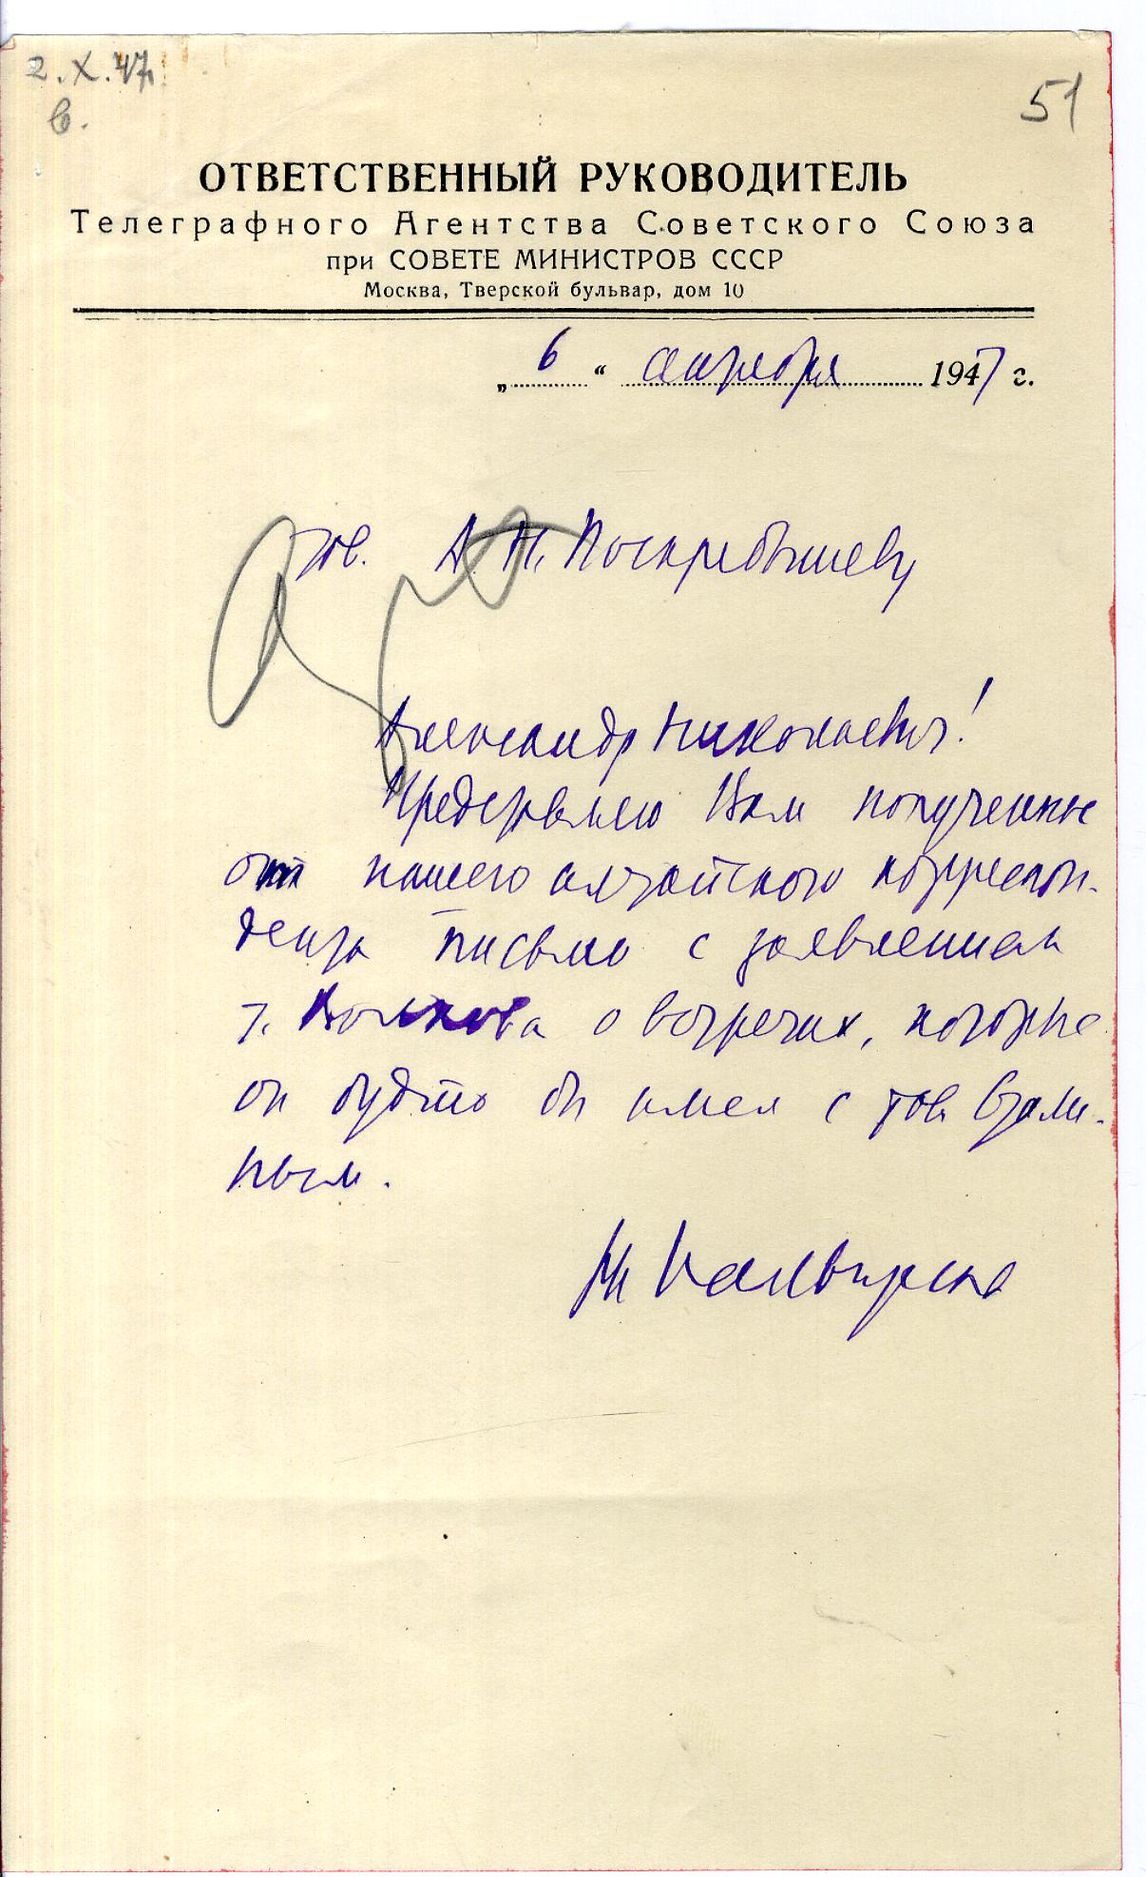 2.X.47.
в.
51
ОТВЕТСТВЕННЫЙ РУКОВОДИТЕЛЬ
Телеграфного Агентства Советского Союза
при СОВЕТЕ МИНИСТРОВ СССР
Москва, Тверской бульвар, дом 10
„6“ 1947 г.
Тов. А Н. Поскребышеву
Александр Николаевич!
Представляю Вам полученное
от нашего алтайского корреспон-
дента письмо с заявлением
т. Волкова о встречах, которые
он будто бы имел с тов Стали-
ным.
Н Пальгунов